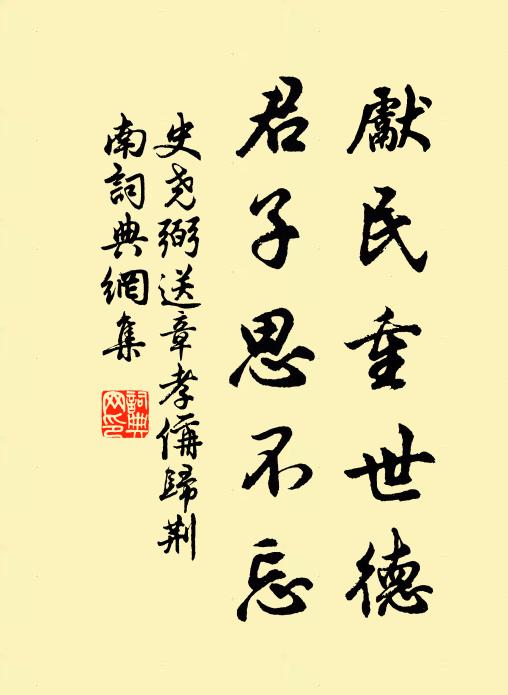 獻民重世德
君子思不忘
史堯弼送章孝偁歸荆
南詞典網集
詞典
网印